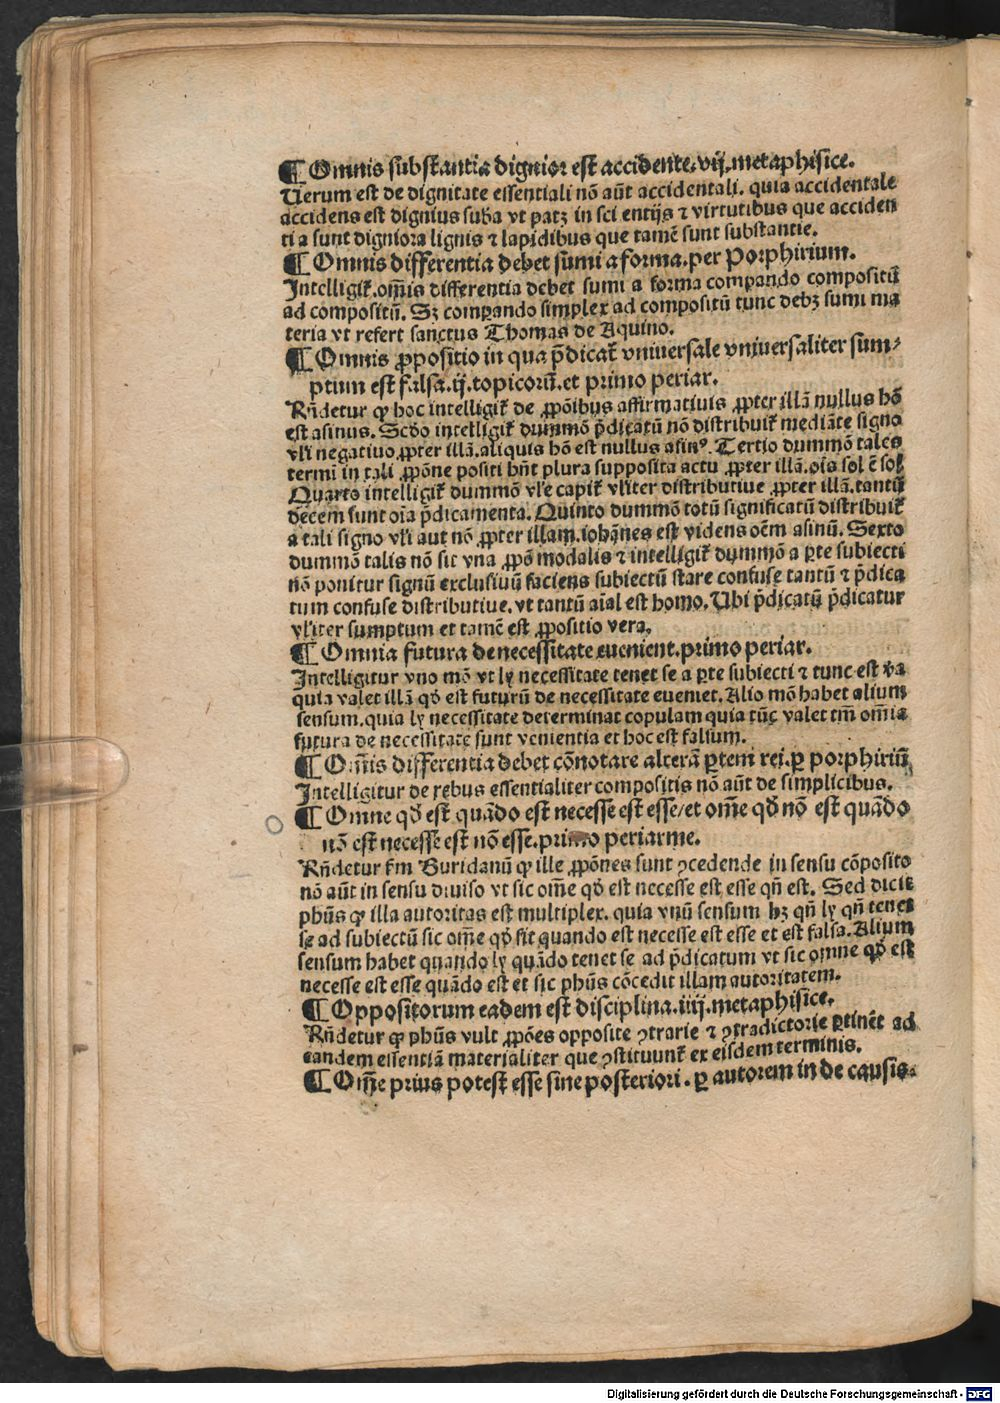 ¶ Omnis substantia dignior est accidente. vij. metaphisice.
Uerum est de dignitate essentiali nō aūt accidentali. quia accidentale
accidens est dignius suba vt patꝫ in sci entijs ⁊ virtutibus que acciden
tia sunt digniora lignis ⁊ lapidibus que tamē sunt substantie.
¶ Omnis differentia debet sūmi a forma. per Porphirium.
Intelligit̄. om̄is differentia debet sumi a forma compando compositū
ad compositū. Sꝫ compando simplex ad compositū tunc debꝫ sumi ma
teria vt refert sanctus Thomas de Aquino.
¶ Omnis ꝓpositio in qua p̄dicat̄ vniuersale vniuersaliter sum⸗
ptum est falsa. ij. topicorū. et primo periar.
Rn̄detur ꝙ hoc intelligit̄ de ꝓpōibus affirmatiuis ꝓpter illā nullus hō
est asinus. Scd̄o intelligit̄ dummō p̄dicatū nō distribuit̄ mediāte signo
vl̓i negatiuo ꝓpter illā. aliquis hō est nullus asinꝰ. Tertio dummō tales
termī in tali ꝓpōne positi hn̄t plura supposita actu ꝓpter illā. oīs sol ē sol
Quarto intelligit̄ dummō vl̓e capit̄ vl̓iter distributiue ꝓpter illā. tantū
decem sunt oīa p̄dicamenta. Quinto dummō totū significatū distribuit̄
a tali signo vl̓i aut nō ꝓpter illam. iohānes est videns oēm asinū. Sexto
dummō talis nō sit vna ꝓpō modalis ⁊ intelligit̄ dummō a ꝑte subiecti
nō ponitur signū exclusiuū faciens subiectū stare confuse tantū ⁊ p̄dica
tum confuse distributiue. vt tantū aīal est homo. Ubi p̄dicatū p̄dicatur
vl̓iter sumptum et tamē est ꝓpositio vera.
¶ Omnia futura de necessitate euenient. primo periar.
Intelligitur vno mō vt ly necessitate tenet se a ꝑte subiecti ⁊ tunc est v̄a
quia valet illā qd̄ est futurū de necessitate eueniet. Alio mō habet alium
sensum. quia ly necessitate determinat copulam quia tūc valet tm̄ om̄ia
futura de necessitate sunt venientia et hoc est falsum.
¶ Om̄is differentia debet cōnotare alterā ꝑtem rei. ꝑ porphiriū
Intelligitur de rebus essentialiter compositis nō aūt de simplicibus.
¶ Omne qd̄ est quādo est necesse est esse/ et om̄e qd̄ nō est quādo
nō est necesse est nō esse. primo periarme.
Rn̄detur sm̄ Buridanū ꝙ ille ꝓpōnes sunt ꝯcedende in sensu cōposito
nō aūt in sensu diuiso vt sic om̄e qd̄ est necesse est esse qn̄ est. Sed dicit
ph̄us ꝙ illa autoritas est multiplex. quia vnū sensum hꝫ qn̄ ly qn̄ tenet
se ad subiectū sic om̄e qd̄ sit quando est necesse est esse et est falsa. Alium
sensum habet quando ly quādo tenet se ad p̄dicatum vt sic omne qd̄ est
necesse est esse quādo est et sic ph̄us cōcedit illam autoritatem.
¶ Oppositorum eadem est disciplina. iiij. metaphisice.
Rn̄detur ꝙ ph̄us vult ꝓpōes opposite ꝯtrarie ⁊ ꝯtradictorie ꝑtinēt ad
eandem essentiā materialiter que ꝯstituunt̄ ex eisdem terminis.
¶ Om̄e prius potest esse sine posteriori. ꝑ autorem in de causis.
Digitalisierung gefördert durch die Deutsche Forschungsgemeinschaft - DFG